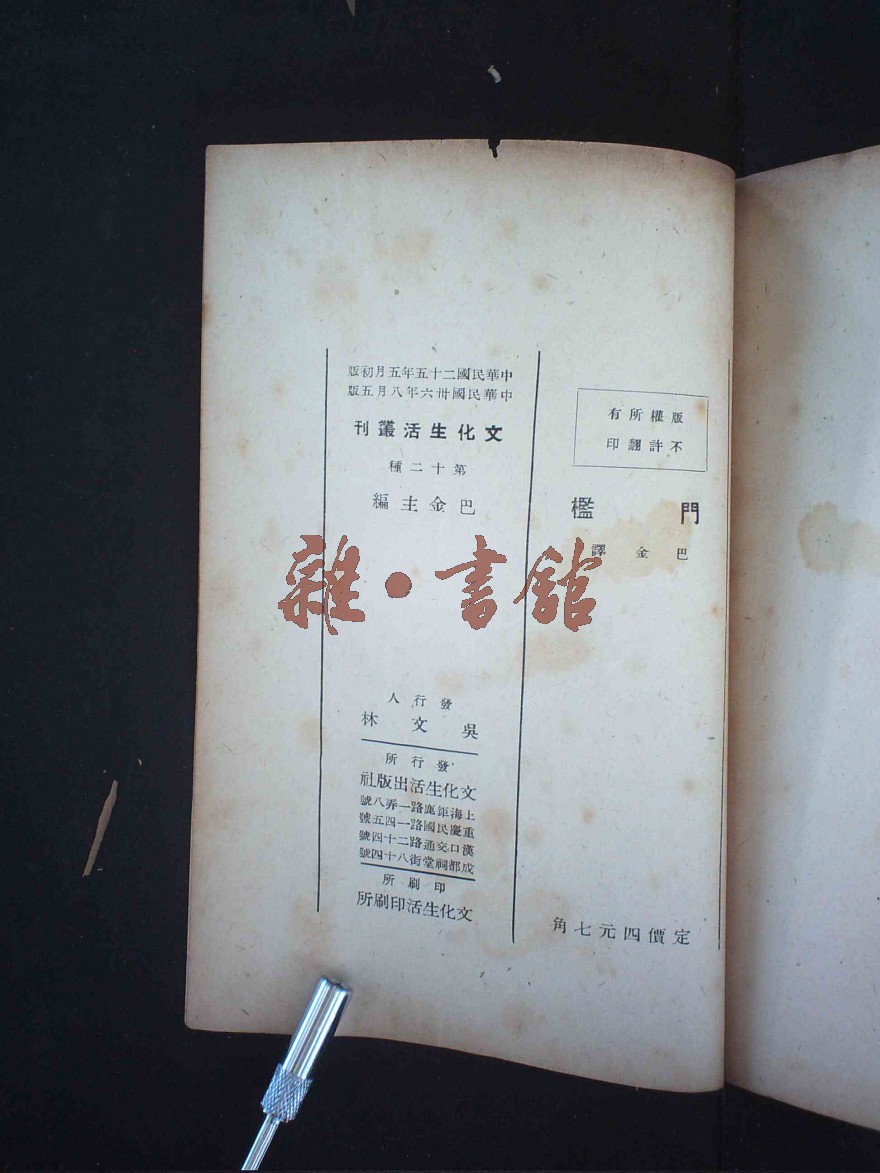 版權所有
不許翻印
門檻
巴金譯
定價四元七角
中華民國二十五年五月初版
中華民國卅六年八月五版
文化生活叢刊
第十二種
巴金主編
發行人
吳文林
發行所
文化生活出版社
上海鉅鹿路一弄八號
重慶民國路一四五號
漢口交通路二十四號
成都祠堂街八十四號
印刷所
文化生活印刷所
雜·書館